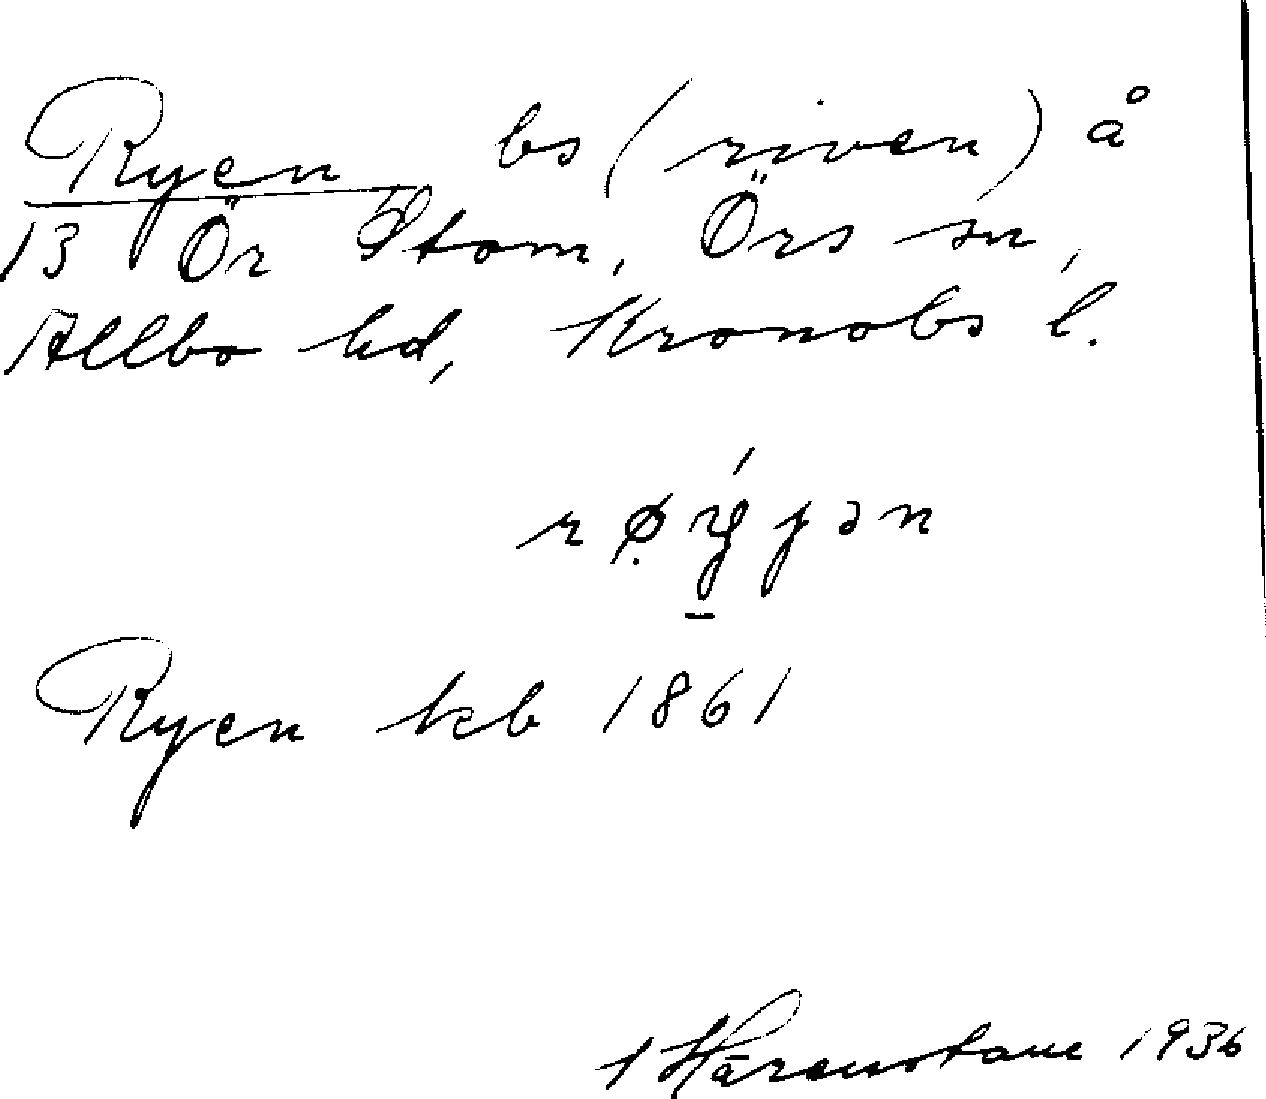 Ryen bs (riven) å
13 Ör Stom, Örs sn,
Allbo hd, Kronobs l.
Ryen kb 1861
1936